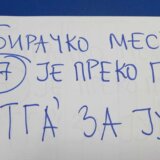 БИРАЧКО МЕС
7 ЈЕ ПРЕКО
ЗА ЈУ